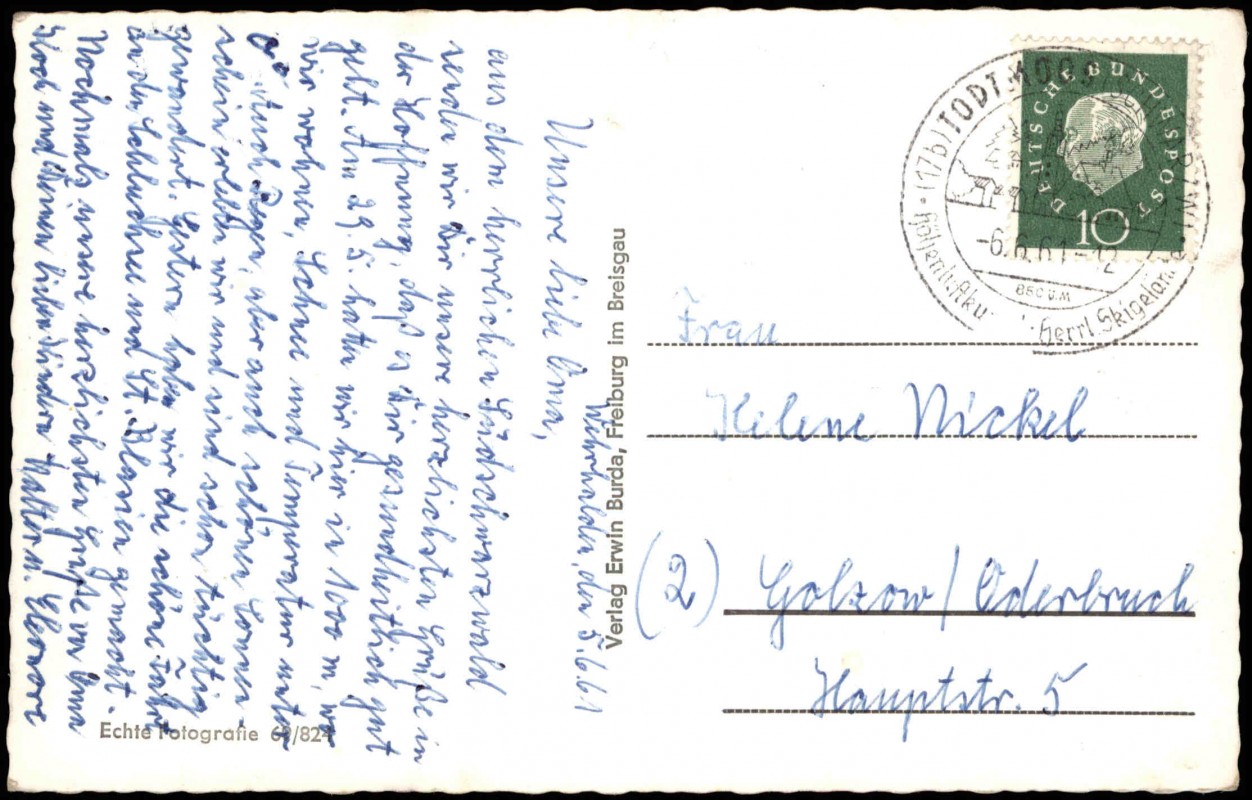 Wehrhalden, den 5.6.61
Unsere liebe Oma,
aus dem herrlichen Südschwarzwald
senden wir Dir unsere herzlichsten Grüße in
der Hoffnung, daß es Dir gesundheitlich gut
geht. Am 29.5. hatten wir hier in 1000 m, wo
wir wohnen, Schnee und Temperatur unter
0°. Auch Regen, aber auch schönen Sonnen-
schein erlebten wir und sind schon tüchtig
gewandert. Gestern haben wir die schöne Fahrt
an den Schluchsee und St. Blasien gemacht.
Nochmals unsere herzlichsten Grüße von
und Deinen lieben Kindern Walter u. Eleonore
Echte Fotografie 62/824
Verlag Erwin Burda, Freiburg im Breisgau
DEUTSCHE BUNDESPOST
10
(17b) TODTMOOS
-6.6.61-12
850 ü.M
Höhenluftku
Herrl. Skigelän
Frau
Helene Nickel
(2) Golzow/Oderbruch
Hauptstr. 5